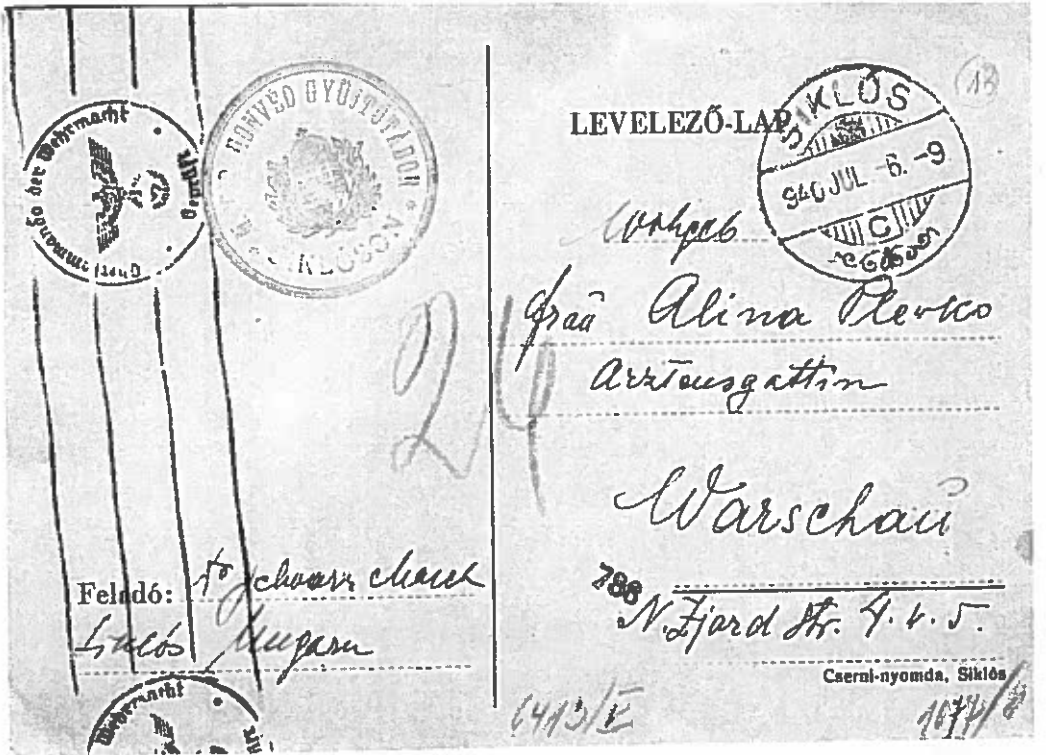 Oberkommando der Wehrmacht
Geprüft
HONVÉD GYŰJTŐTÁBOR
SIKLÓSON
LEVELEZŐ-LAP
SIKLÓS
940 JUL -6. -9
C
13
24
Alina Plevko
Arztensgattin
Warschau
788
N. Zjard Str. 4. v. 5.
Feladó: Dr Schwarz Marek
Siklós, Ungarn
Cserni-nyomda, Siklós
6413/V
1077/
Wehrmacht